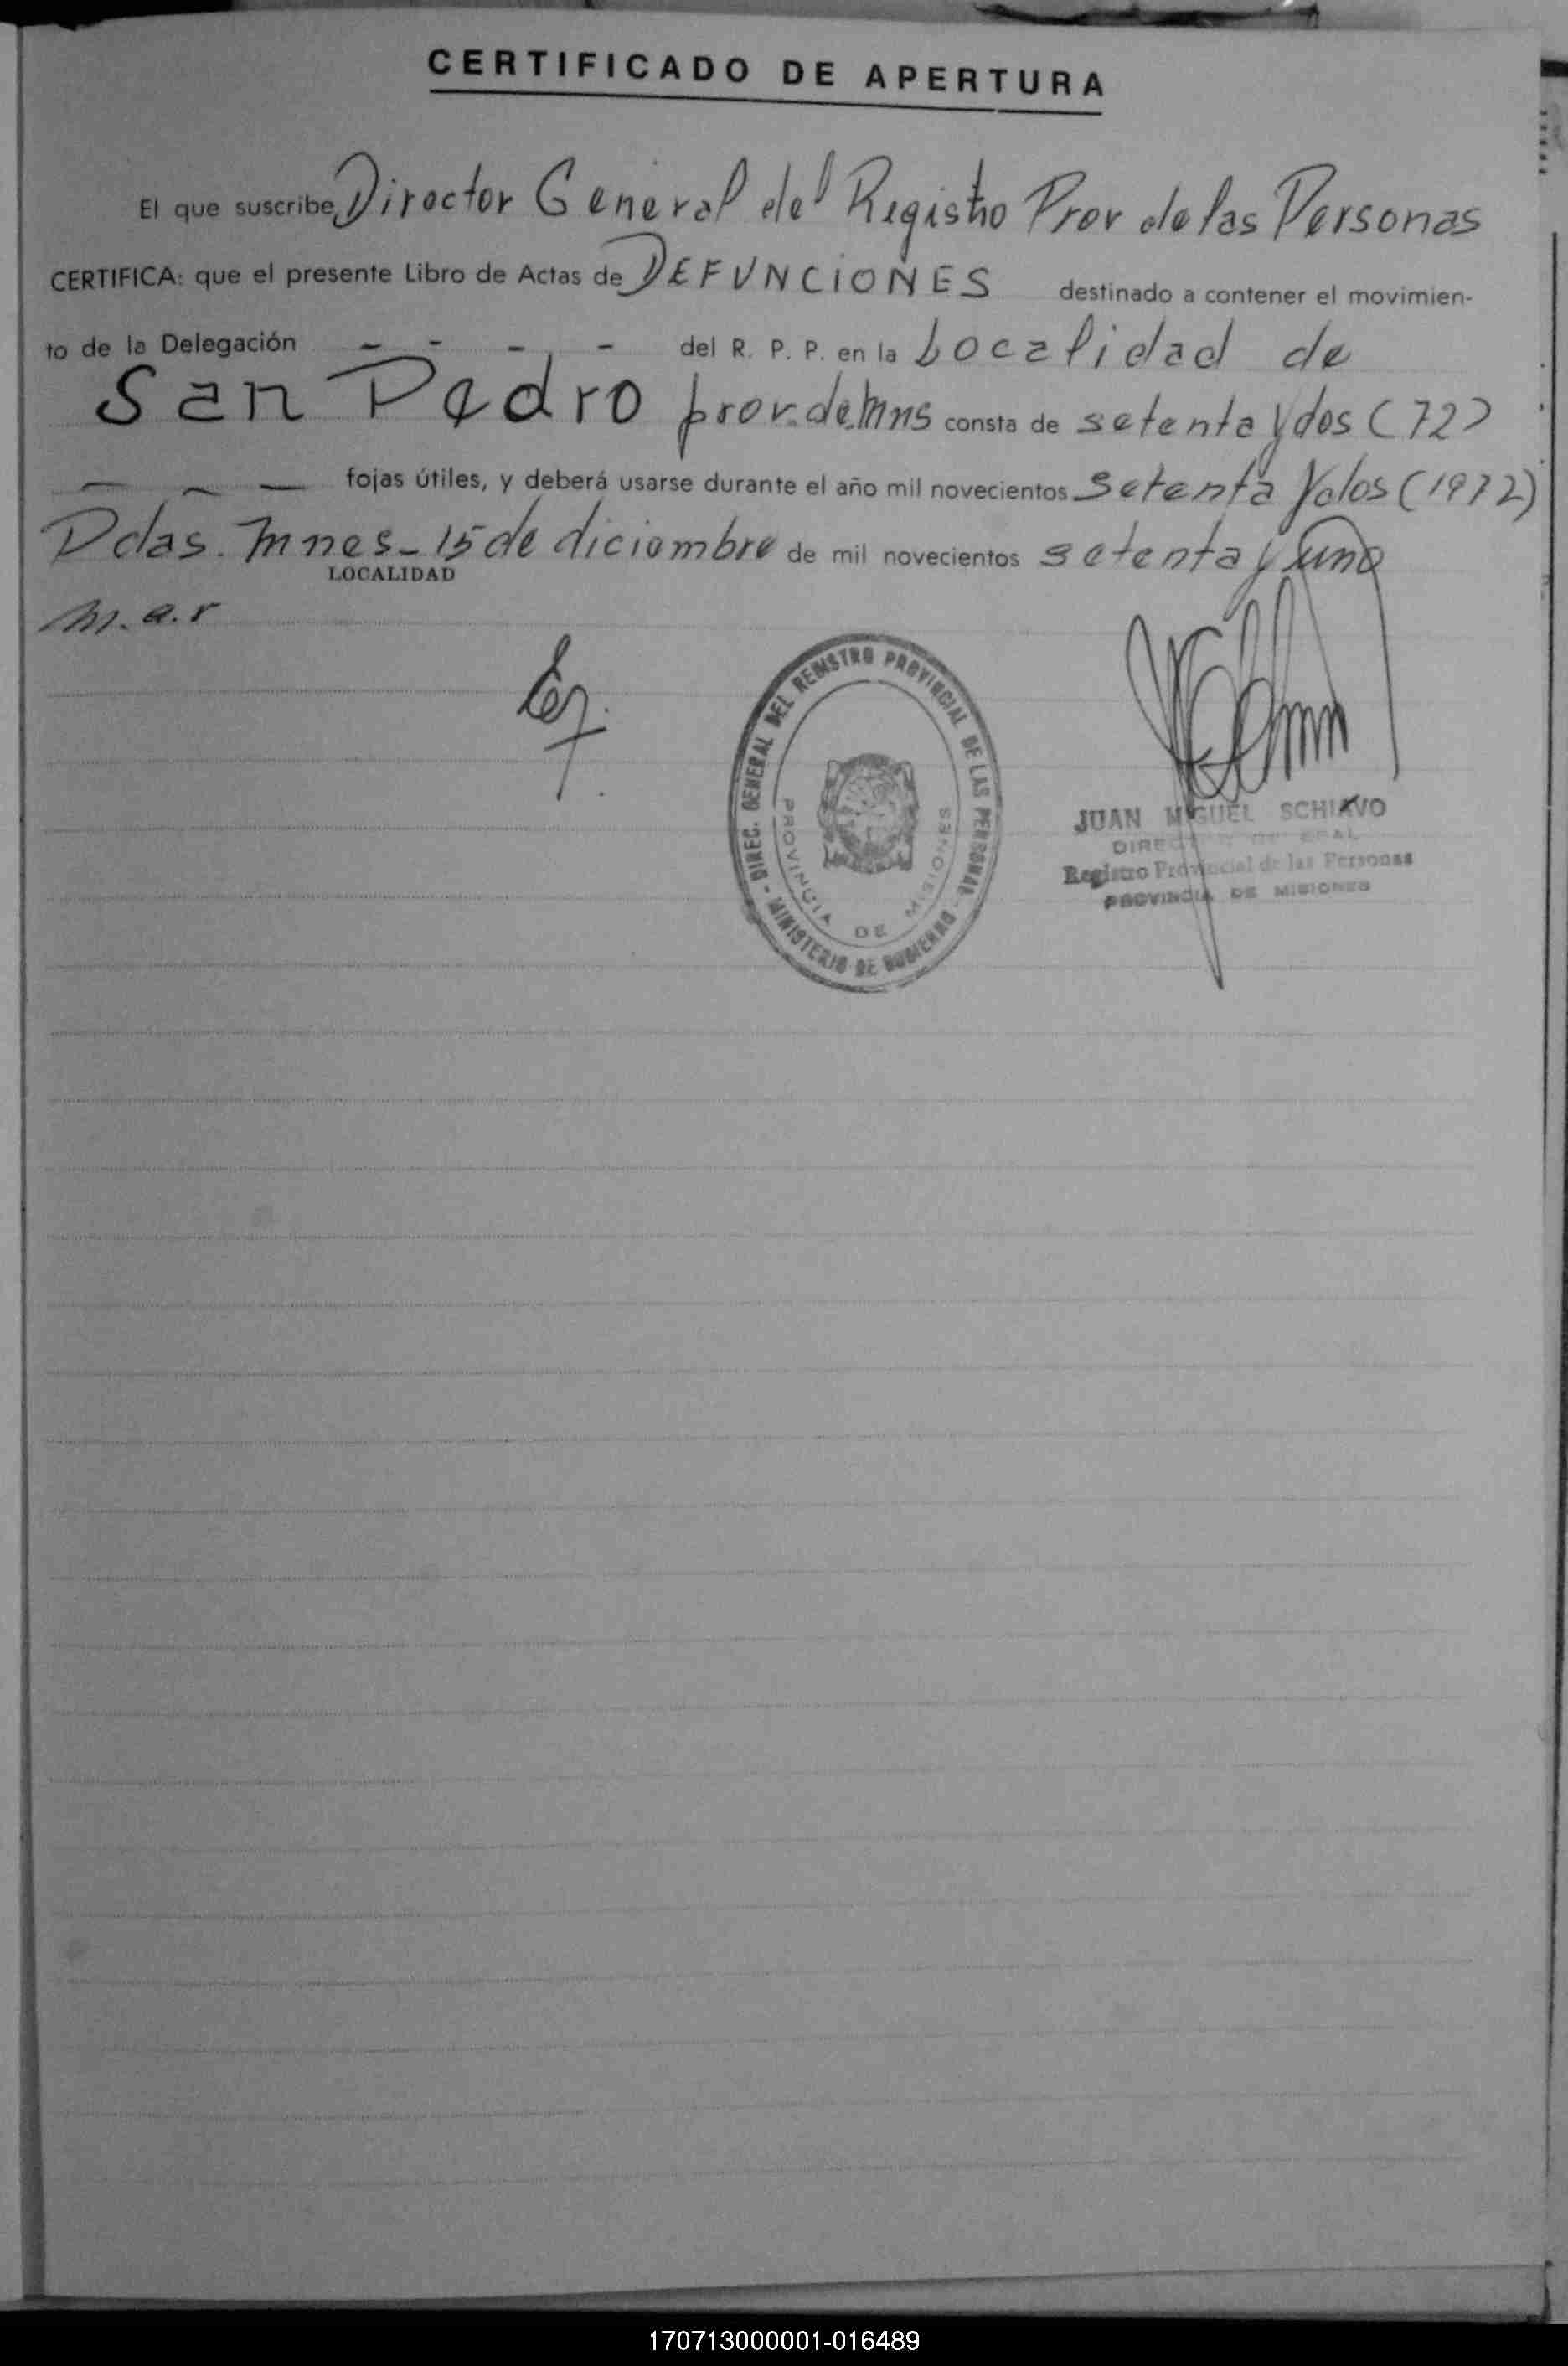 CERTIFICADO DE APERTURA
El que suscribe Director General del Registro Prov de las Personas
CERTIFICA: que el presente Libro de Actas de DEFUNCIONES destinado a contener el movimien-
to de la Delegación - - - - del R. P. P. en la Localidad de
San Pedro prov. de Mns consta de setenta y dos (72)
— — — fojas útiles, y deberá usarse durante el año mil novecientos setenta y dos (1972)
Pdas. Mnes - 15 de diciembre de mil novecientos setenta y uno
LOCALIDAD
m.a.r
MINISTERIO DE GOBIERNO - DIREC. GENERAL DEL REGISTRO PROVINCIAL DE LAS PERSONAS -
PROVINCIA DE MISIONES
JUAN MIGUEL SCHIAVO
Registro Provincial de las Personas
PROVINCIA DE MISIONES
170713000001-016489